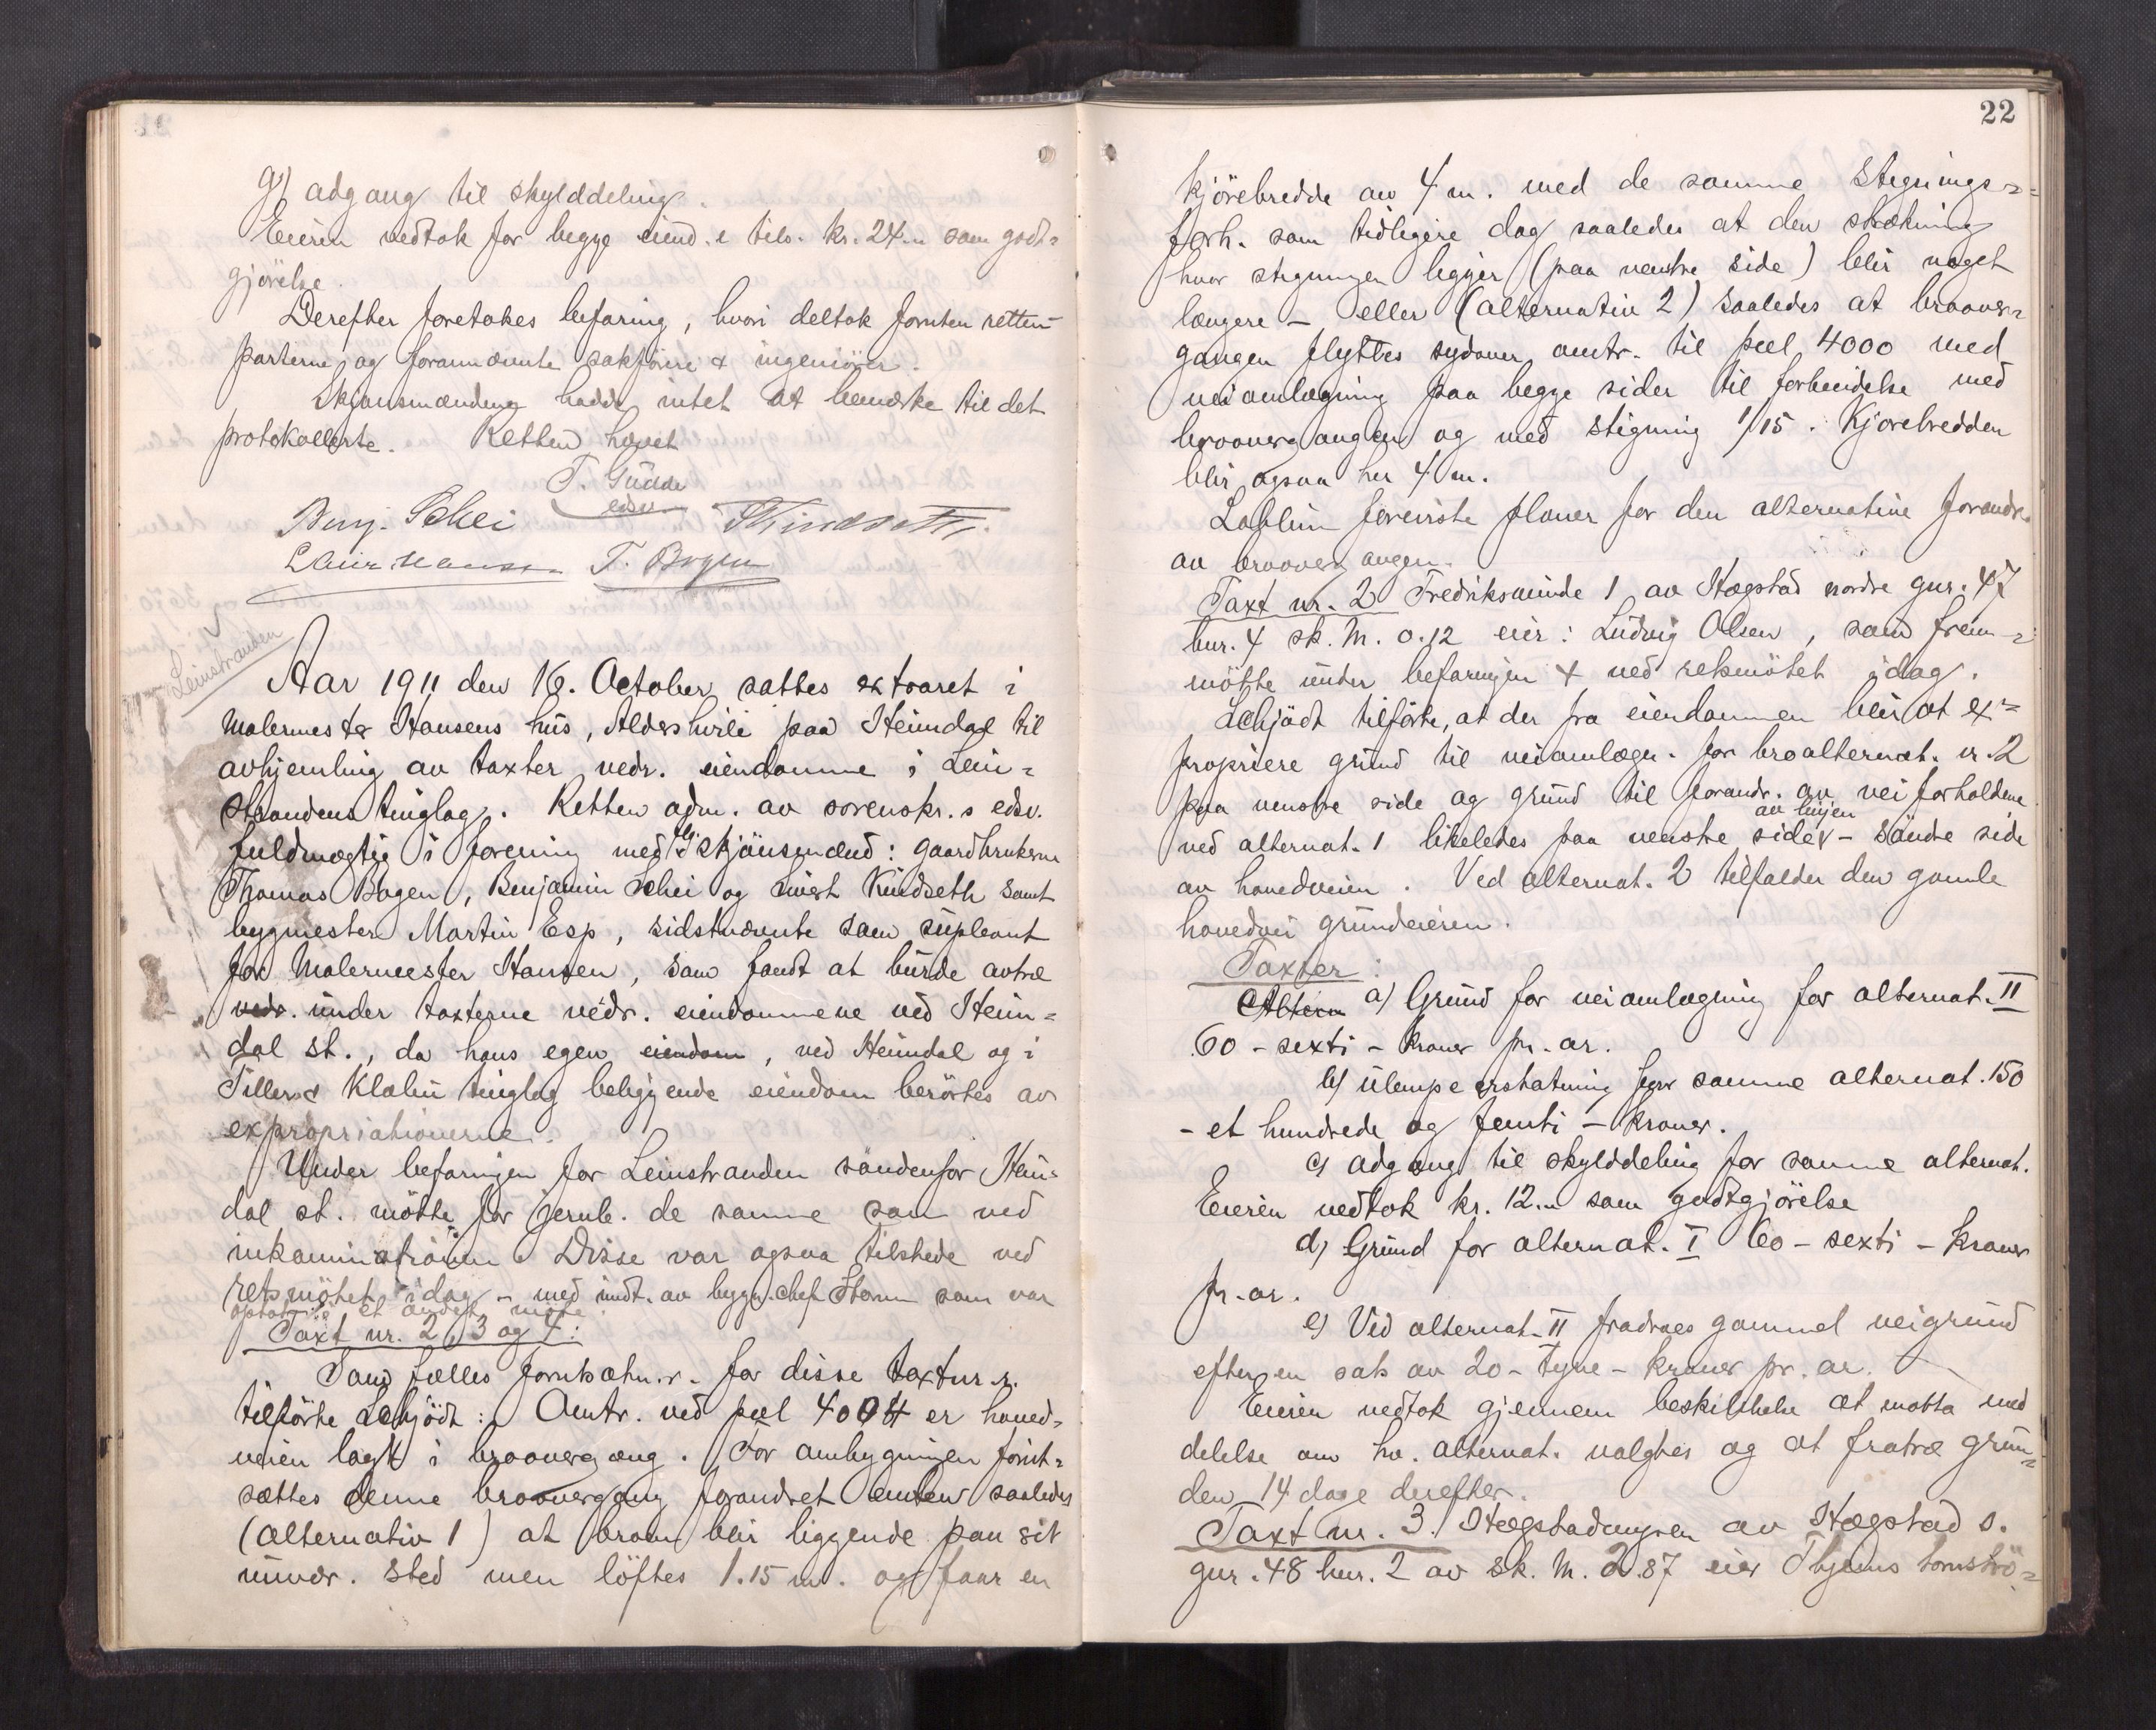 g) adgang til skylddeling.
Eieren vedtok for begge eiend.e tils. kr. 24.- som godt-
gjörelse.
Derefter foretokes befaring, hvori deltok foruten retten
parterne og forannævnte sakförere & ingeniörer.
Skjönsmændene hadde intet at bemerke til det
protokollerte. Retten hævet
T. Gudde
edsv.
Benj. Schei
T. Bogen
Leinstranden
Aar 1911 den 16. October sattes extraret i
Malermester Hansens hus, Aldershvile paa Heimdal til
avhjemling av taxter vedr. eiendomme i Lein-
strandens tinglag. Retten adm. av sorenskr.s edsv.
fuldmægtig i forening med skjönsmænd: gaardbrukerne
Thomas Bogen, Benjamin Schei og Sivert Kindseth samt
bygmester Martin Esp, sidstnævnte som supleant
for Malermester Hansen, som fandt at burde avtræ
vedr. under taxterne vedr. eiendommene ved Heim-
dal st., da hans egen eiendom, ved Heimdal og i
Tiller & Klæbu tinglag beliggende eiendom berörtes av
expropriationerne.
Under befaringen for Leinstranden söndenfor Heim-
dal st. mötte for jernb. de samme som ved
inkaminationen. Disse var ogsaa tilstede ved
retsmötet idag - med undt. av bygn.chef Storm som var
optat i et andet möte.
Taxt nr. 2, 3 og 4:
Som fælles forutsætn.r. for disse taxtnr.r.
tilförte Schjödt: Omtr. ved pæl 4004 er hoved-
veien lagt i broovergang. For ombygningen forut-
sættes denne broovergang forandret enten saaledes
(alternativ 1) at broen blir liggende paa sit
nuvær. sted men löftes 1.15 m. og faar en
22
kjörebredde av 4 m. med de samme stignings-
forh. som tidligere dog saaledes at den strækning
hvor stigningen ligger (paa venstre side) blir noget
længere - eller (alternativ 2) saaledes at broover-
gangen flyttes sydover omtr. til pæl 4000 med
veiomlægning paa begge sider til forbindelse med
broovergangen og med stigning 1/15. Kjörebredden
blir ogsaa her 4 m.
foreviste planer for den alternative forandr.
av broovergangen.
Taxt nr. 2 Fredriksminde 1 av Hægstad nordre gnr. 47
bnr. 4 sk. M. 0.12 eier: Ludvig Olsen, som frem-
mötte under befaringen & ved retsmötet idag.
Schjödt tilförte, at der fra eiendommen blir at ex-
propriere grund til veiomlægn. for broalternat. nr. 2
paa venstre side og grund til forandr. av veiforholdene
ved alternat. 1 likeledes paa venstre side av linjen - söndre side
av hovedveien. Ved alternat. 2 tilfalder den gamle
hovedvei grundeieren.
Taxter:
Altern a) Grund for veiomlægning for alternat. II
60 - sexti - kroner pr. ar.
b) ulempeerstatning for samme alternat. 150
- et hundrede og femti - kroner.
c) adgang til skylddeling for samme alternat.
Eieren vedtok kr. 12.- som godtgjörelse
d) Grund for alternat. I 60 - sexti - kroner
pr. ar.
e) Ved alternat. II fradraes gammel veigrund
efter en sats av 20 - tyve - kroner pr. ar.
Eieren vedtok gjennem beskikkelse at motta med
delelse om hv. alternat. valgtes og at fratræ grun-
den 14 dage derefter.
Taxt nr. 3. Hægstadengen av Hægstad s.
gnr. 48 bnr. 2 av sk. M. 2.87 eier